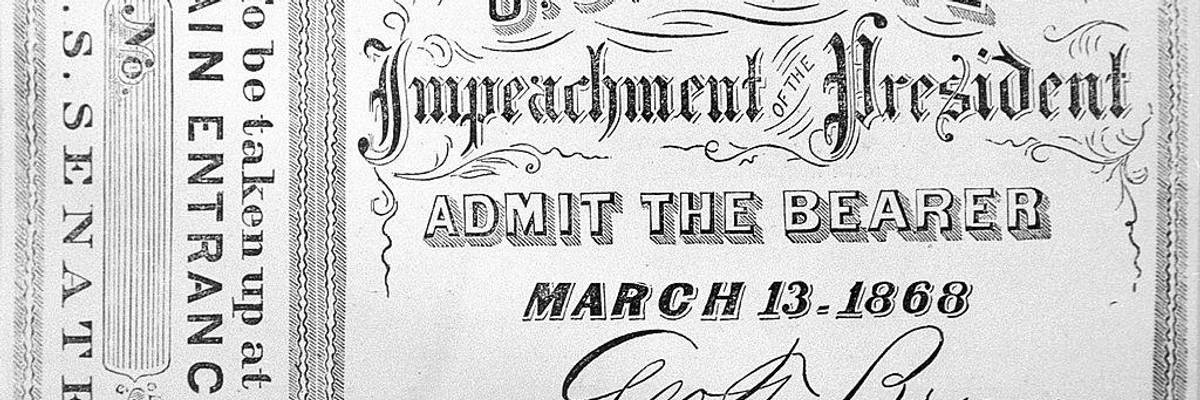 To be taken up at
AIN ENTRANC
No.
S. SENATE
Impeachment OF THE President
ADMIT THE BEARER
MARCH 13-1868
Geo